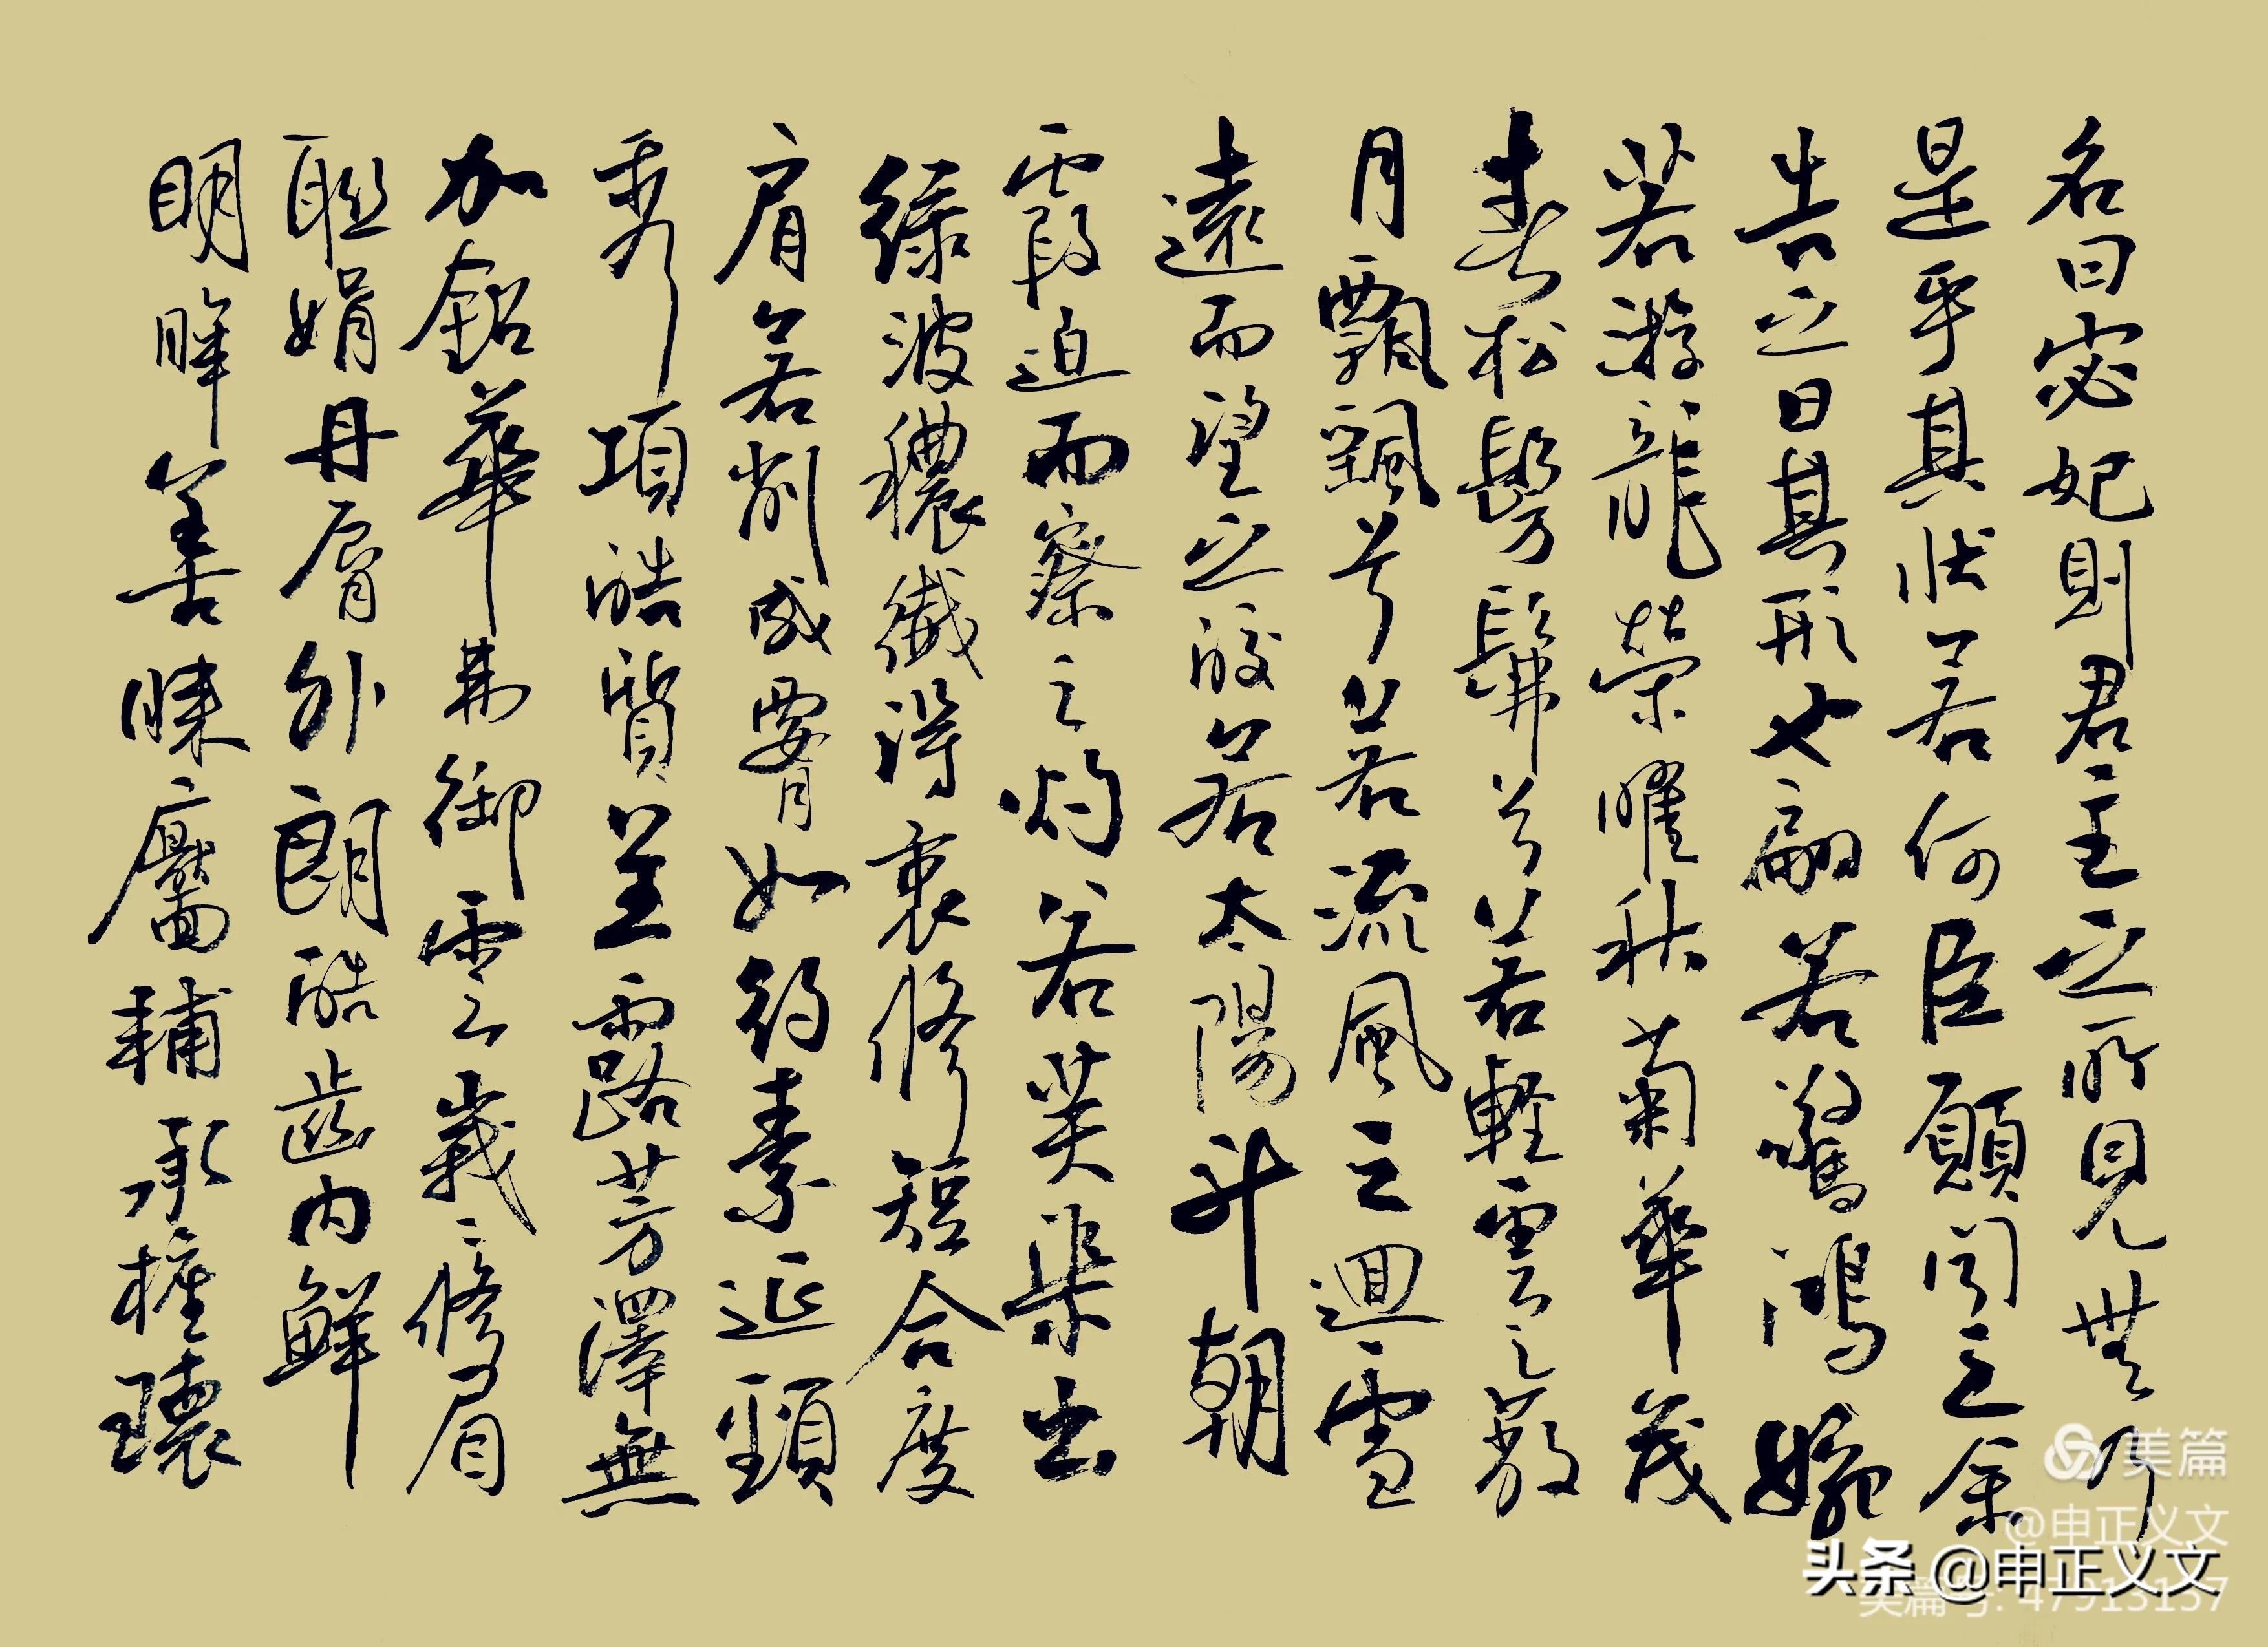 名曰宓妃則君王之所見無乃
是乎其狀若何臣願聞之余
告之曰其形也翩若驚鴻婉
若游龍榮曜秋菊華茂
春松髣髴兮若輕雲之蔽
月飄飖兮若流風之迴雪
遠而望之皎若太陽升朝
霞迫而察之灼若芙渠出
綠波穠纖得衷修短合度
肩若削成腰如約素延頸
秀項皓質呈露芳澤無
加鉛華弗御雲峩〻修眉
聯娟丹脣外朗皓齒內鮮
明眸善睞靨輔承權瓌
美篇
@申正义文
头条 @申正义文
美篇号: 47913137